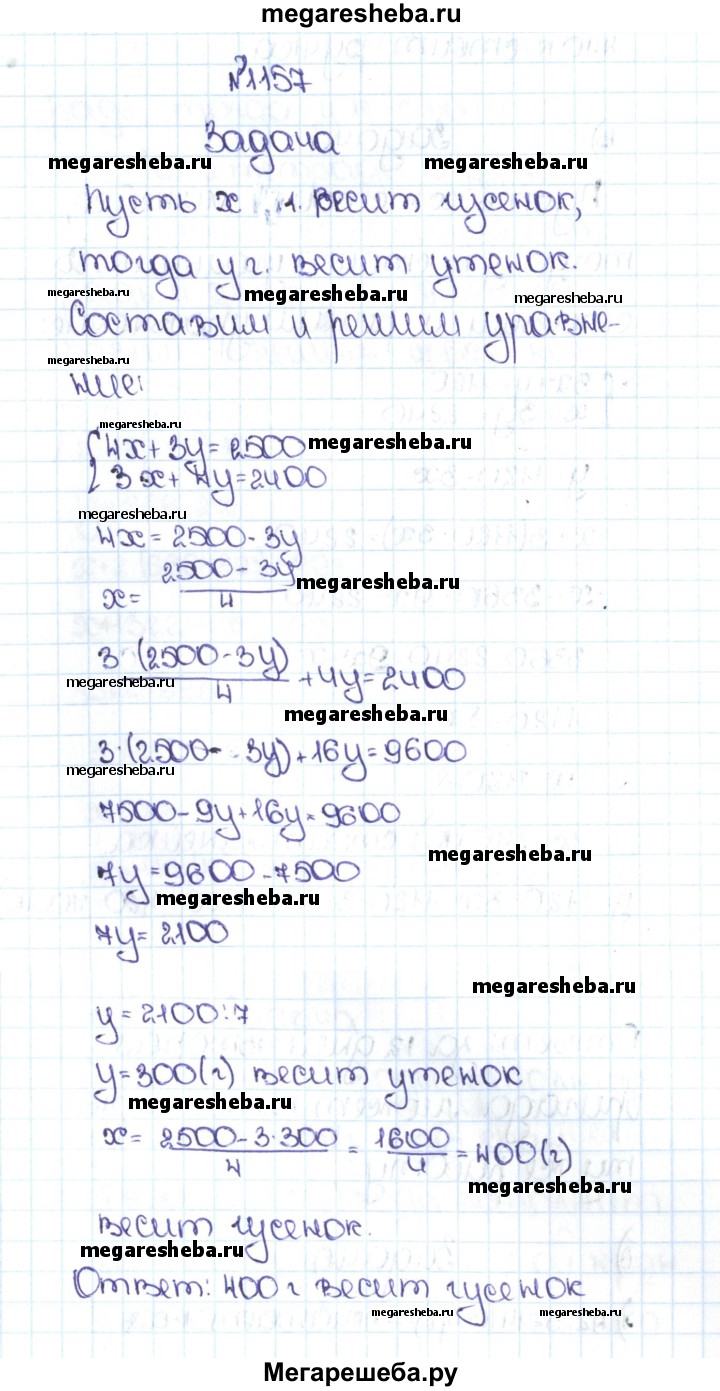 megaresheba.ru
№1157
Задача
megaresheba.ru megaresheba.ru
Пусть x г. весит гусенок,
тогда y г. весит утенок.
megaresheba.ru megaresheba.ru megaresheba.ru
Составим и решим уравне-
megaresheba.ru
ние:
megaresheba.ru
{4x+3y=2500 megaresheba.ru
3x+4y=2400
megaresheba.ru
4x=2500-3y
x= (2500-3y)/4 megaresheba.ru
3·(2500-3y)/4 +4y=2400
megaresheba.ru
megaresheba.ru
3·(2500-3y)+16y=9600
megaresheba.ru
7500-9y+16y=9600
megaresheba.ru
7y=9600-7500
megaresheba.ru
7y=2100
megaresheba.ru
y=2100:7
y=300(г) весит утенок
megaresheba.ru
x= (2500-3·300)/4 = 1600/4 =400(г)
megaresheba.ru
весит гусенок.
megaresheba.ru
Ответ: 400 г весит гусенок
megaresheba.ru megaresheba.ru
Мегарешеба.ру